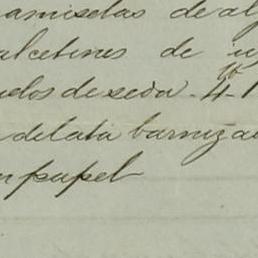 camisetas de al
alcetines de
uelos de seda - 4 -
de lata barniza
n papel